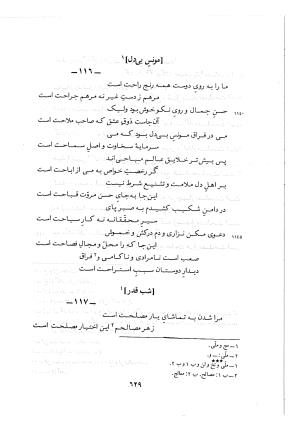 [مونس بی‌دل]۱
ـ ۱۱۶ ـ
ما را به روی دوست همه رنج راحت است
مرهم ز دستِ غیر نه مرهم جراحت است
۱۱۴۰ حسنِ جمال و روی نکو خوش بود ولیک
آن‌جاست ذوقِ عشق که صاحب ملاحت است
می در فراق مونسِ بی‌دل بود که می
سرمایهٔ سخاوت و اصلِ سماحت است
پس بیش‌تر خلایقِ عالم مباحی‌اند
گر رخصتِ خواص به می از اباحت است
بر اهلِ دل ملامت و تشنیع شرط نیست
این‌جا به جای حسنِ مروّت قباحت است
در دامنِ شکیب کشیدم به صبر پای
سیرِ محقّقانه نه کارِ سیاحت است
۱۱۴۵ دعوی مکن نزاری و دم درکش و خموش
این‌جا که را محلّ و مجالِ فصاحت است
صعب است نامرادی و ناکامی و۲ فراق
دیدارِ دوستان سببِ استراحت است
[شب قدر]۱
ـ ۱۱۷ ـ
مرا شدن به تماشای یار مصلحت است
ز هر مصالحم۲ این اختیار مصلحت است
۱ـ مج و ملّی.
۲ـ ملّی: ــ و.
۱ـ
۲ـ ب ۱: مصالح. ب ۲: معالج.
۶۲۹